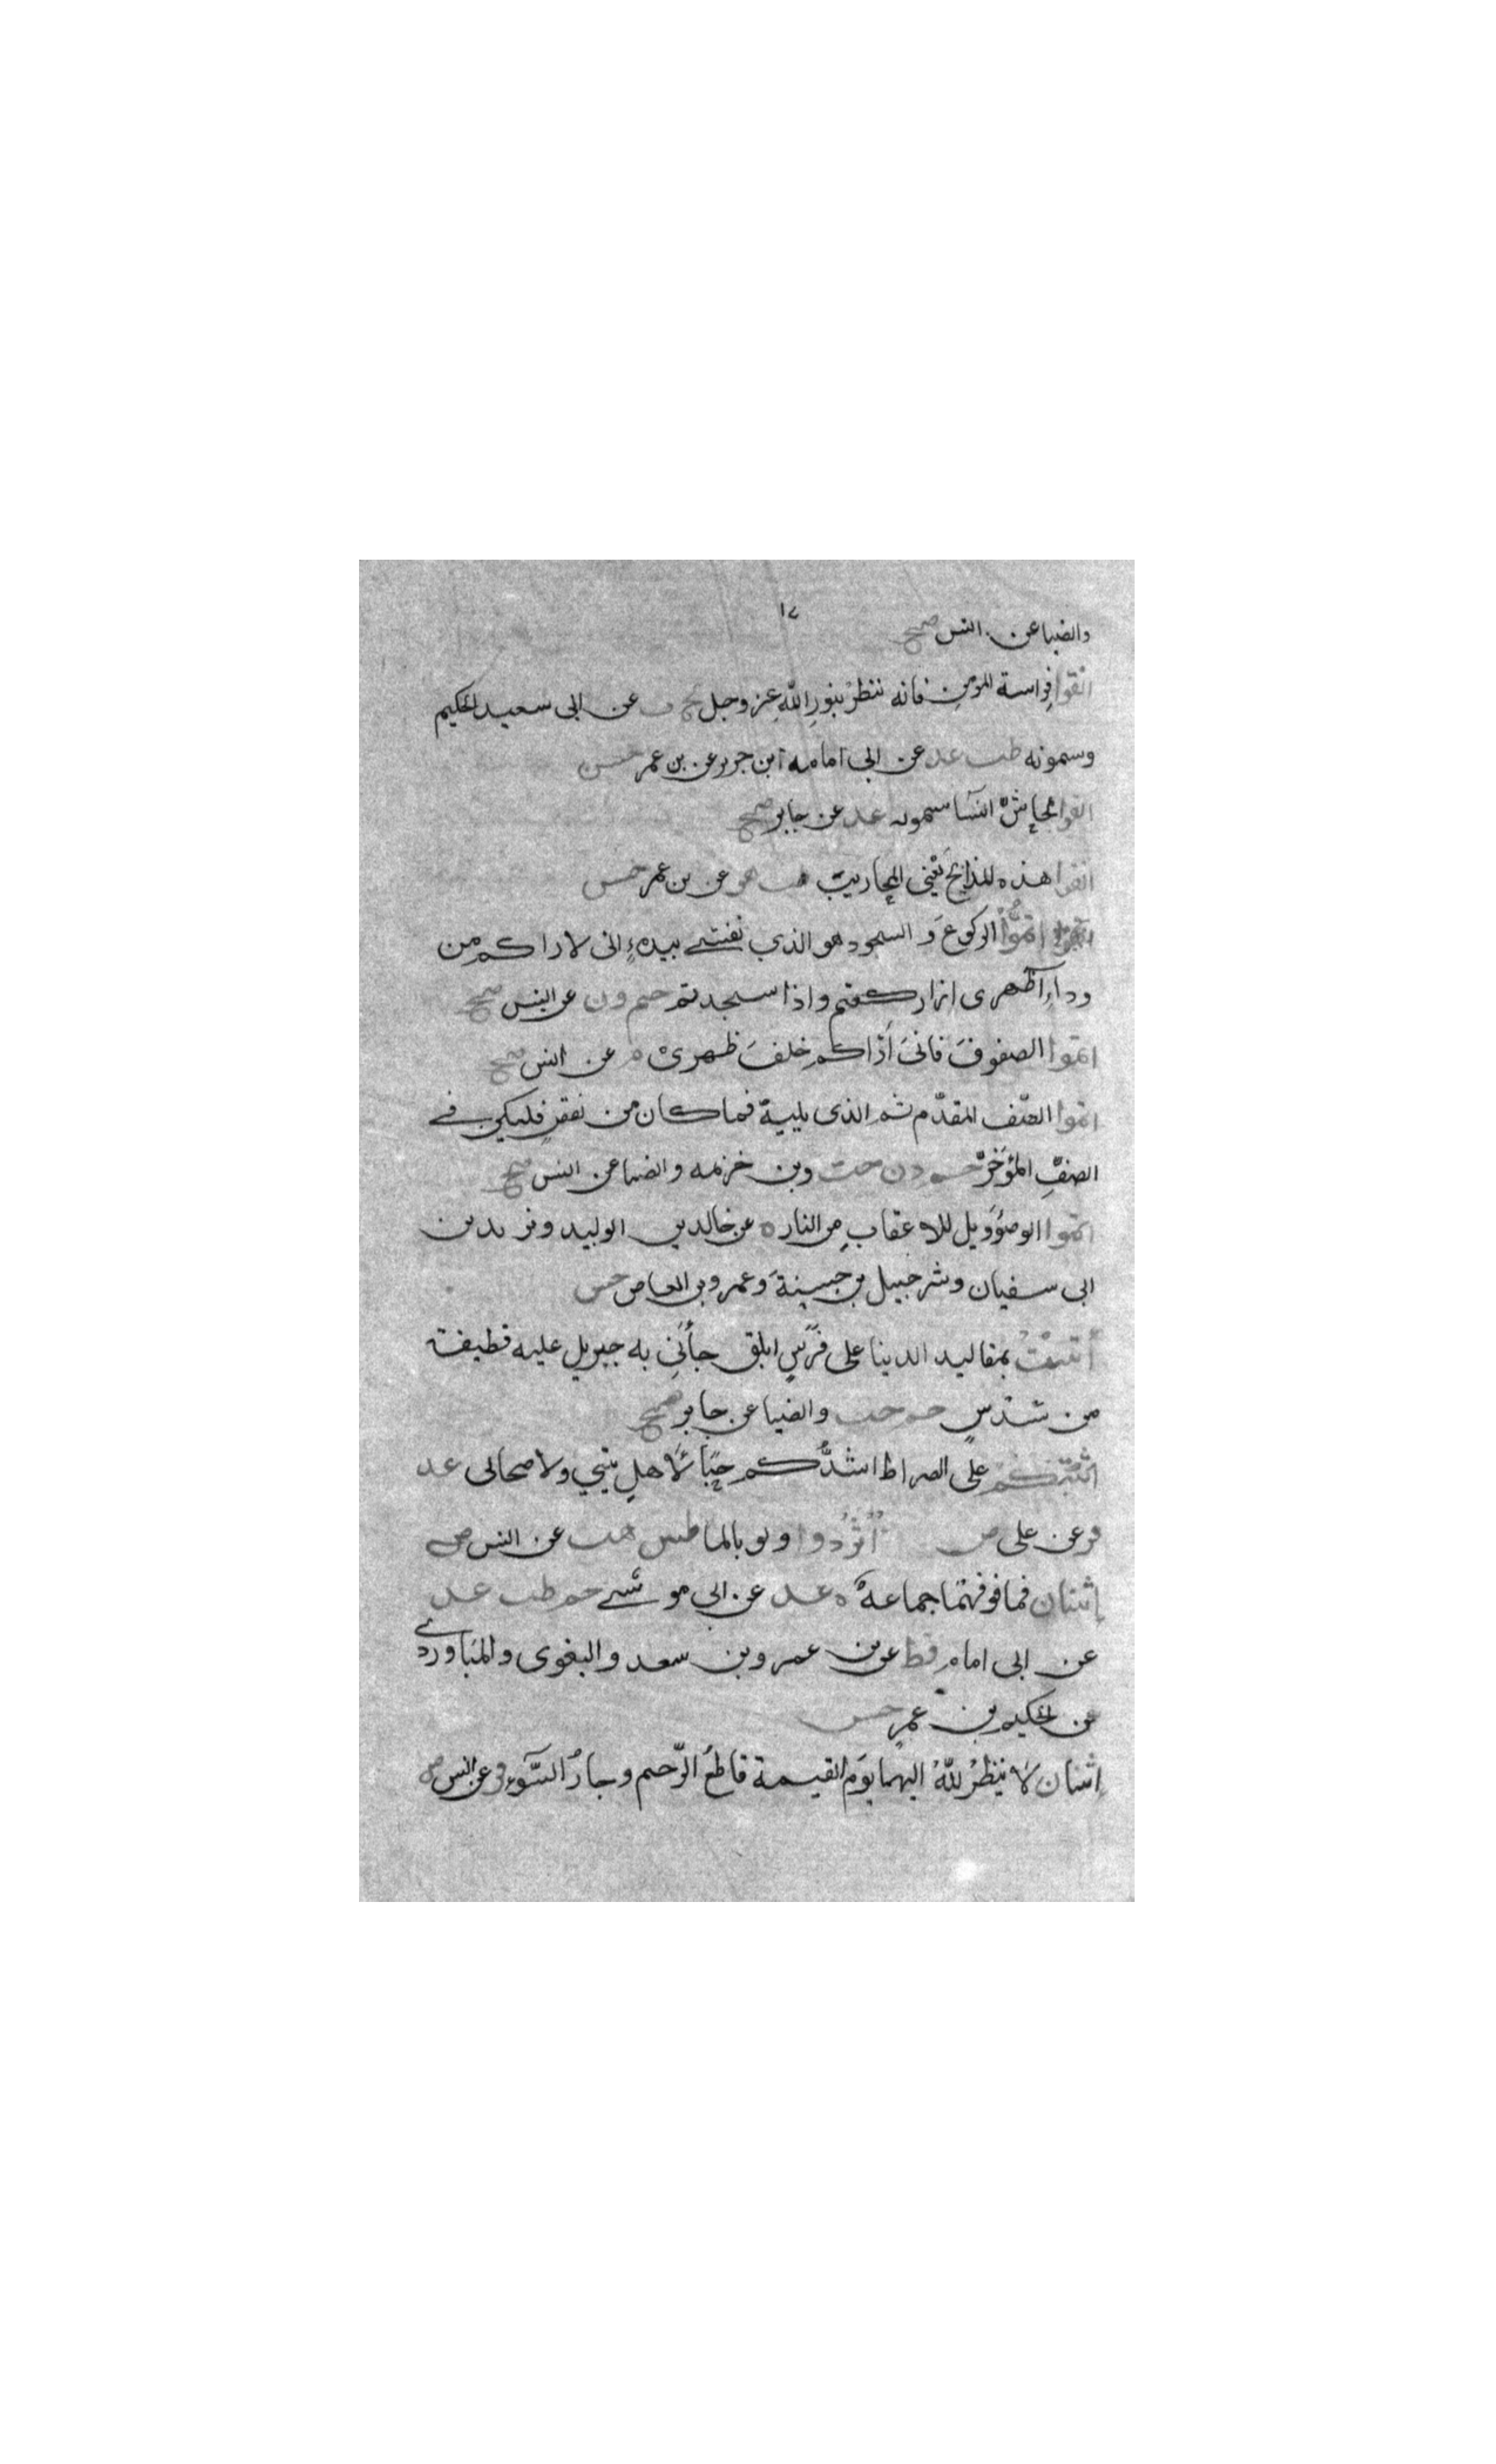 ١٧
والضيا عن انس صحيح
اتقوا فراسة المومن فانه ينظر بنور الله عز وجل تخ ت عن ابى سعيد الحكيم
وسمونه طب عد عن ابى امامه ابن جرير عن بن عمر حسن
اتقوا محاش النسا سمونه عد عن جابر صحيح
اتقوا هذه المذابح يعنى المحاريب طب هق عن بن عمر حسن
اتموا الركوع و السجود هو الذي نفسے بيده انى لاراكم من
وراء ظهرى اذا ركعتم واذا سجدتم حم ق ن عن انس صحيح
اتموا الصفوف فانى اراكم خلف ظهرى م عن انس صحيح
اتموا الصف المقدم ثم الذى يليه فما كان من نقص فليكن فے
الصف المؤخر حم د ن حب وبن خزيمه والضيا عن انس صحيح
اتموا الوضؤ ويل للاعقاب من النار ه عن خالد بن الوليد ويزيد بن
ابى سفيان وشرحبيل بن حسنة وعمرو بن العاص حسن
أتيت بمقاليد الدنيا على فرس ابلق جأنى به جبريل عليه قطيفة
من سندس حم حب والضيا عن جابر صحيح
اثبتكم على الصراط اشدكم حبا لأهل بيتي ولاصحابى عد
فر عن على ض أثردوا ولو بالما طس هب عن انس ض
إثنان فما فوقهما جماعة ه عد عن ابى موسے حم طب عد
عن ابى امامه قط عن بن عمرو بن سعد والبغوى والباوردے
عن الحكيم بن عمير حسن
اثنان لا ينظر الله اليهما يوم القيمة قاطع الرحم وجار السوء فر عن انس ض